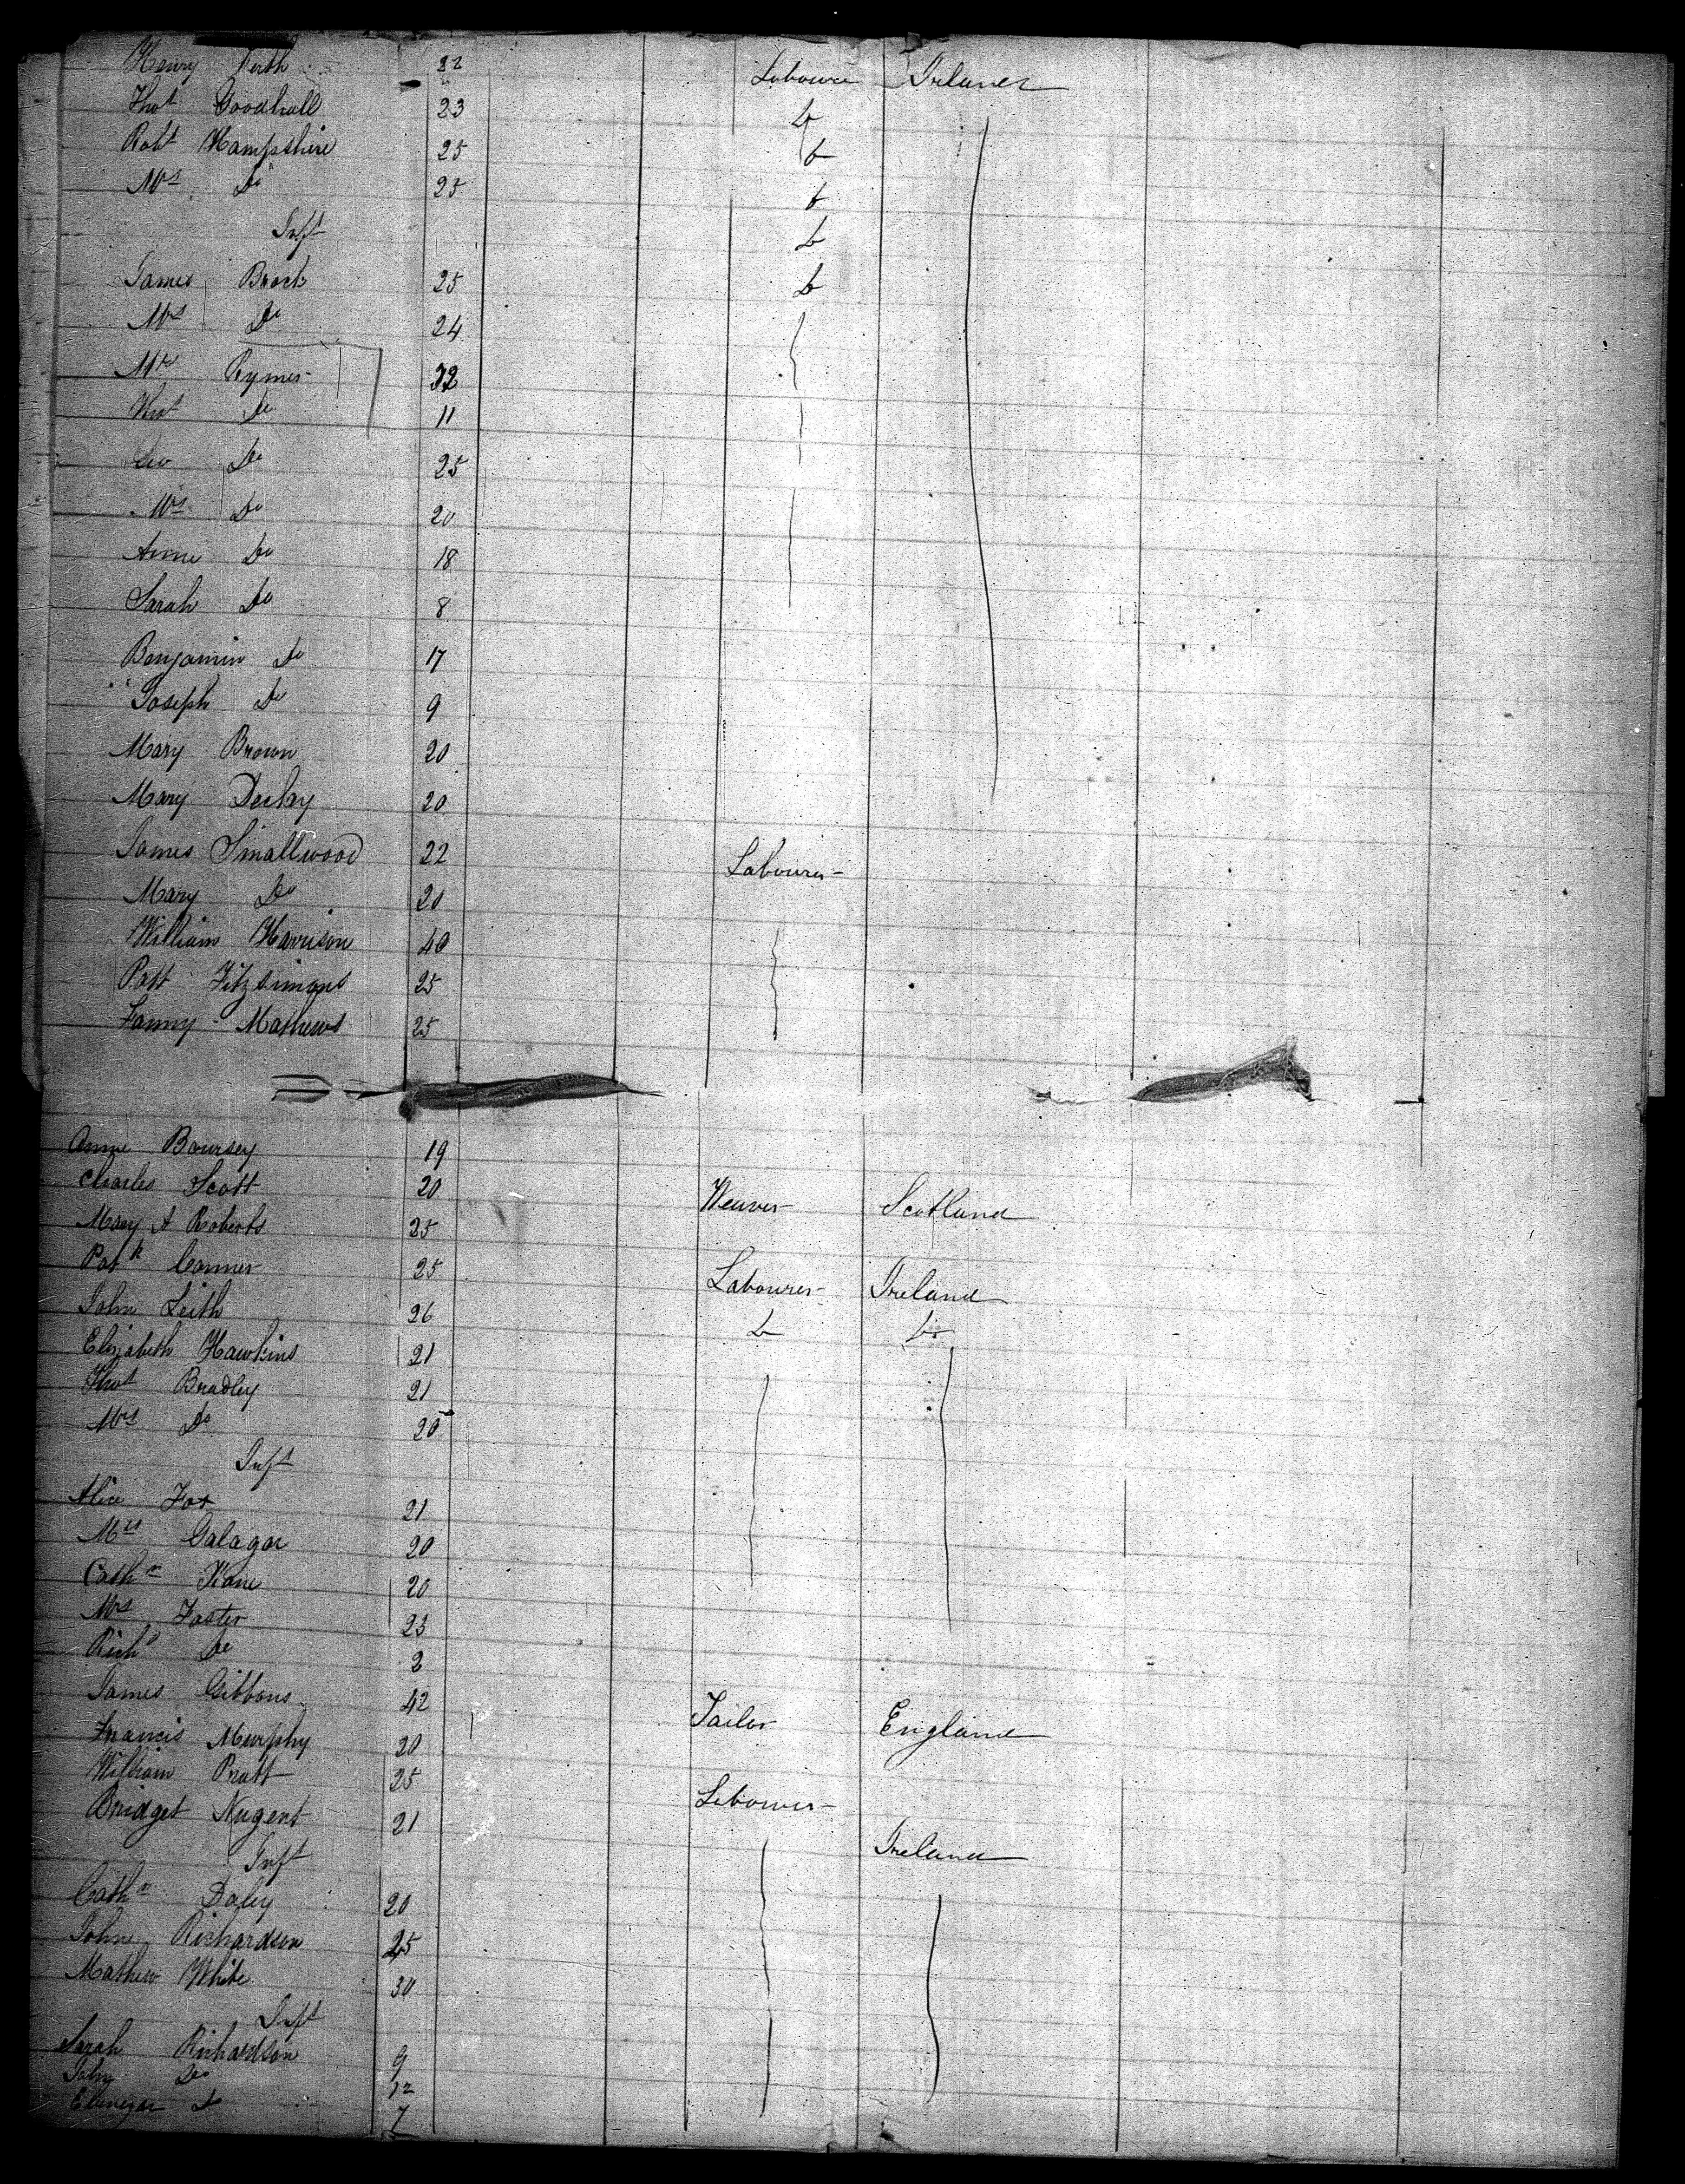 Henry 22 Laboure Ireland
Thos Goodhall 23 Do
Robt Hampshire 25 Do
Mrs Do 25 Do
Inft Do
James Brock 25 Do
Mrs Do 24
Mrs Rymer 32
Do 11
Geo Do 25
Mrs Do 20
Anne Do 18
Sarah Do 8
Benjamin Do 17
Joseph Do 9
Mary Brown 20
Mary 20
James Smallwood 22 Labourer
Mary Do 20
William Harrison 40
Patt Fitzsimons 25
Fanny Mathews 25
Anne Boursey 19
Charles Scott 20 Weaver Scotland
Mary A Roberts 25
Patk Conner 25 Labourer Ireland
John Leith 26 Do Do
Elizabeth Hawkins 21
Thos Bradley 21
Mrs Do 20
Inft
Alice Fox 21
Mrs Galagar 20
Cathn Kane 20
Mrs Foster 23
Richd Do 2
James Gibbons 42 Tailor England
Francis Murphy 20
William Pratt 25 Labourer
Bridget Nugent 21 Ireland
Inft
Cathn Daley 20
John Richardson 25
Mathew White 30
Inft
Sarah Richardson 9
John Do 12
Ebenezar Do 7